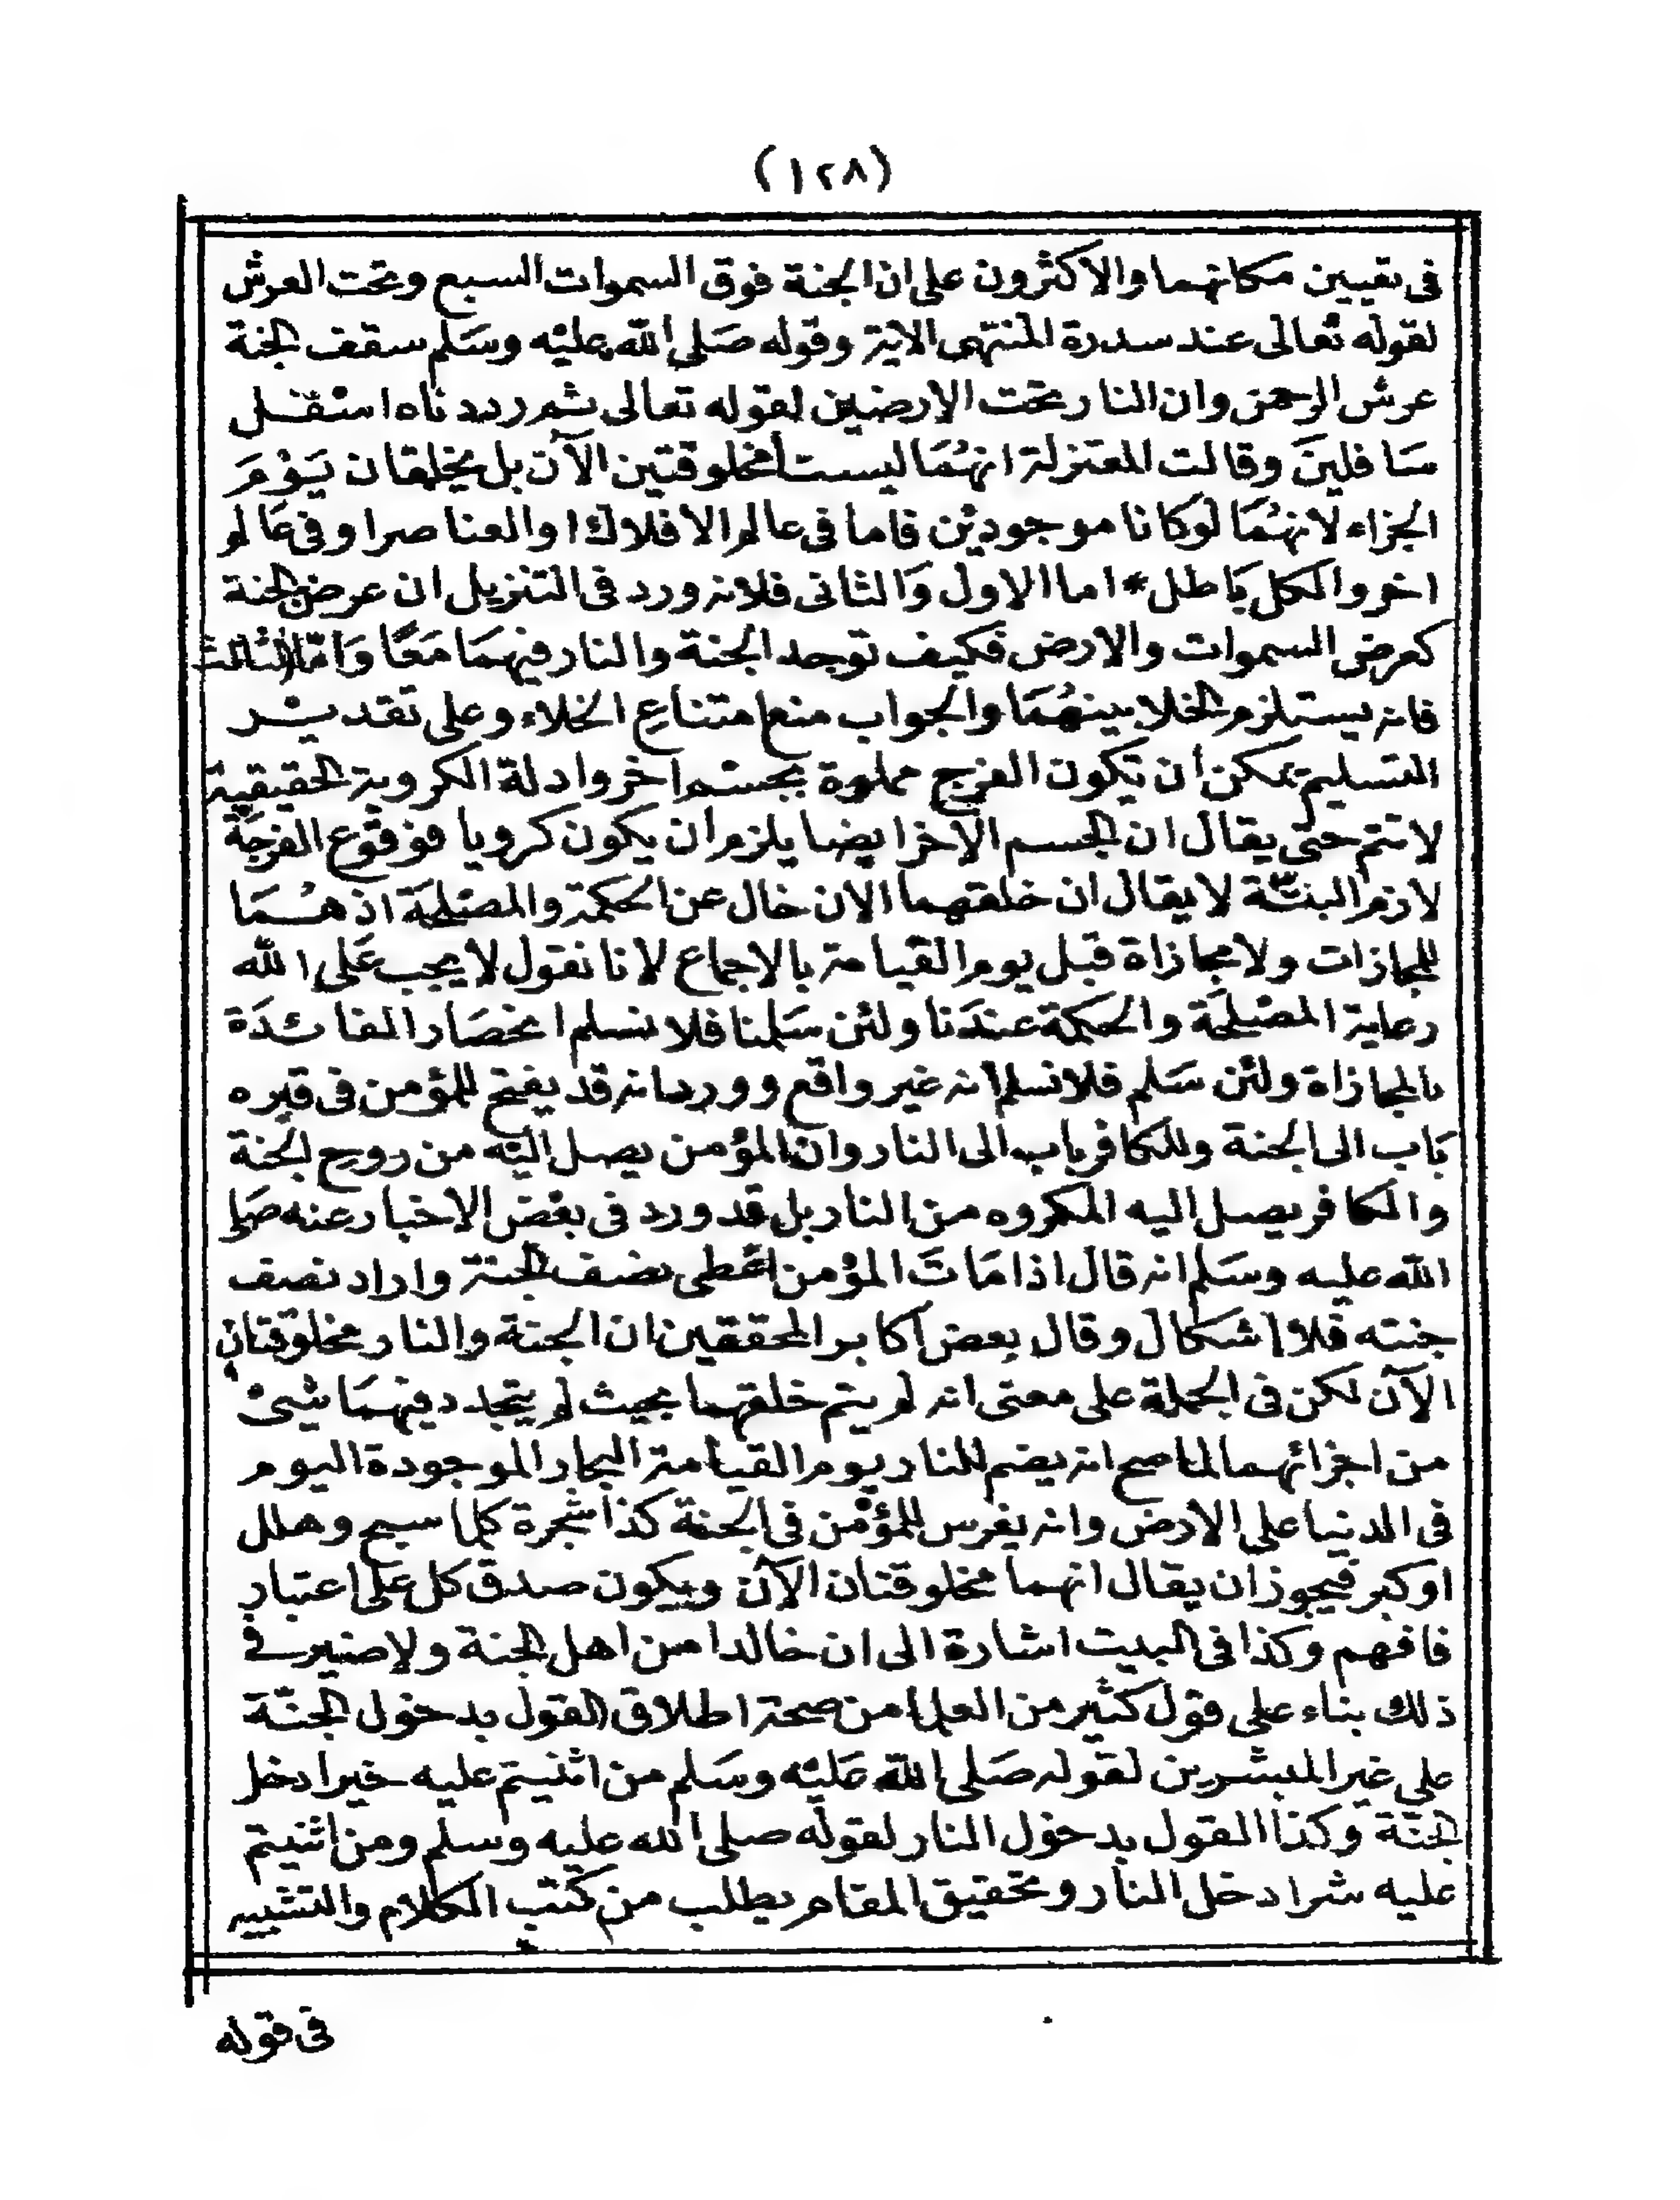 (١٢٨)
فى تعيين مكانهما والاكثرون على ان الجنة فوق السموات السبع وتحت العرش
لقوله تعالى عند سدرة المنتهى الاية وقوله صَلى الله عليْه وسَلم سقف الجنة
عرش الرحمن وان النار تحت الارضين لقوله تعالى ثم رددناه اسْفل
سَافلينَ وقالت المعتزلة انهمَا ليستا مخلوقتين الآن بل يخلقان يَوْمَ
الجزاء لانهمَا لوكانا موجوديْن فاما فى عالم الافلاك او العناصر او فى عَالم
اخر والكل بَاطل * اما الاول وَالثانى فلانه ورد فى التنزيل ان عرض الجنة
كعرض السموات والارض فكيف توجد الجنة والنار فيهمَا مَعًا وَامّا الثالث
فانه يستلزم الخلا بينهُمَا والجواب منع امتناع الخلاء وعلى تقديْر
التسليم يمكن ان تكون الفرج مملوة بجسْم اخر وادلة الكروية الحقيقية
لا تتم حتى يقال ان الجسم الاخر ايضا يلزم ان يكون كرويا فوقوع الفرجَة
لازم البتّة لا يقال ان خلقهما الان خال عن الحكمة والمصْلحَة اذ هُمَا
للمجازات ولا مجازاة قبل يوم القيامة بالاجماع لانا نقول لا يجب عَلى الله
رعاية المصْلحَة والحكمة عندَنا ولئن سَلمنا فلا نسلم انحصَار الفائدَة
بالمجازاة ولئن سَلم فلا نسلم انه غير واقع وورد انه قد يفتح للمؤمن فى قبره
بَاب الى الجنة وللكافر باب الى النار وان المؤمن يصل اليْه من روح الجنة
والكافر يصل اليه المكروه من النار بل قد ورد فى بعْض الاخبار عنه صَلى
الله عليه وسَلم انه قال اذا مَاتَ المؤمن اعْطى نصف الجنة واراد نصف
جنته فلا اشكال وقال بعض اكابر المحققين ان الجنة والنار مخلوقتان
الآن لكن فى الجملة على معنى انه لم يتم خلقهما بحيث لم يتجدد فيهمَا شئْ
من اجزائهما لما صح انه يضم للنار يوم القيامة البحار الموجودة اليوم
فى الدنيا على الارض وانه يغرس للمؤمن فى الجنة كذا شجرة كلما سبح وهلل
او كبر فيجوز ان يقال انهما مخلوقتان الآن ويكون صدق كل على اعتبار
فافهم وكذا فى البيت اشارة الى ان خالدا من اهل الجنة ولا ضير فى
ذلك بناء على قول كثير من العلما من صحة اطلاق القول بدخول الجنّة
على غير المبشرين لقوله صَلى الله عَليْه وسَلم من اثنيتم عليه خيرا دخل
الجنّة وكذا القول بدخول النار لقوله صلى الله عليه وسلم ومن اثنيتم
عليه شرا دخل النار وتحقيق المقام يطلب من كتب الكلام والتشبيه
فى قوله